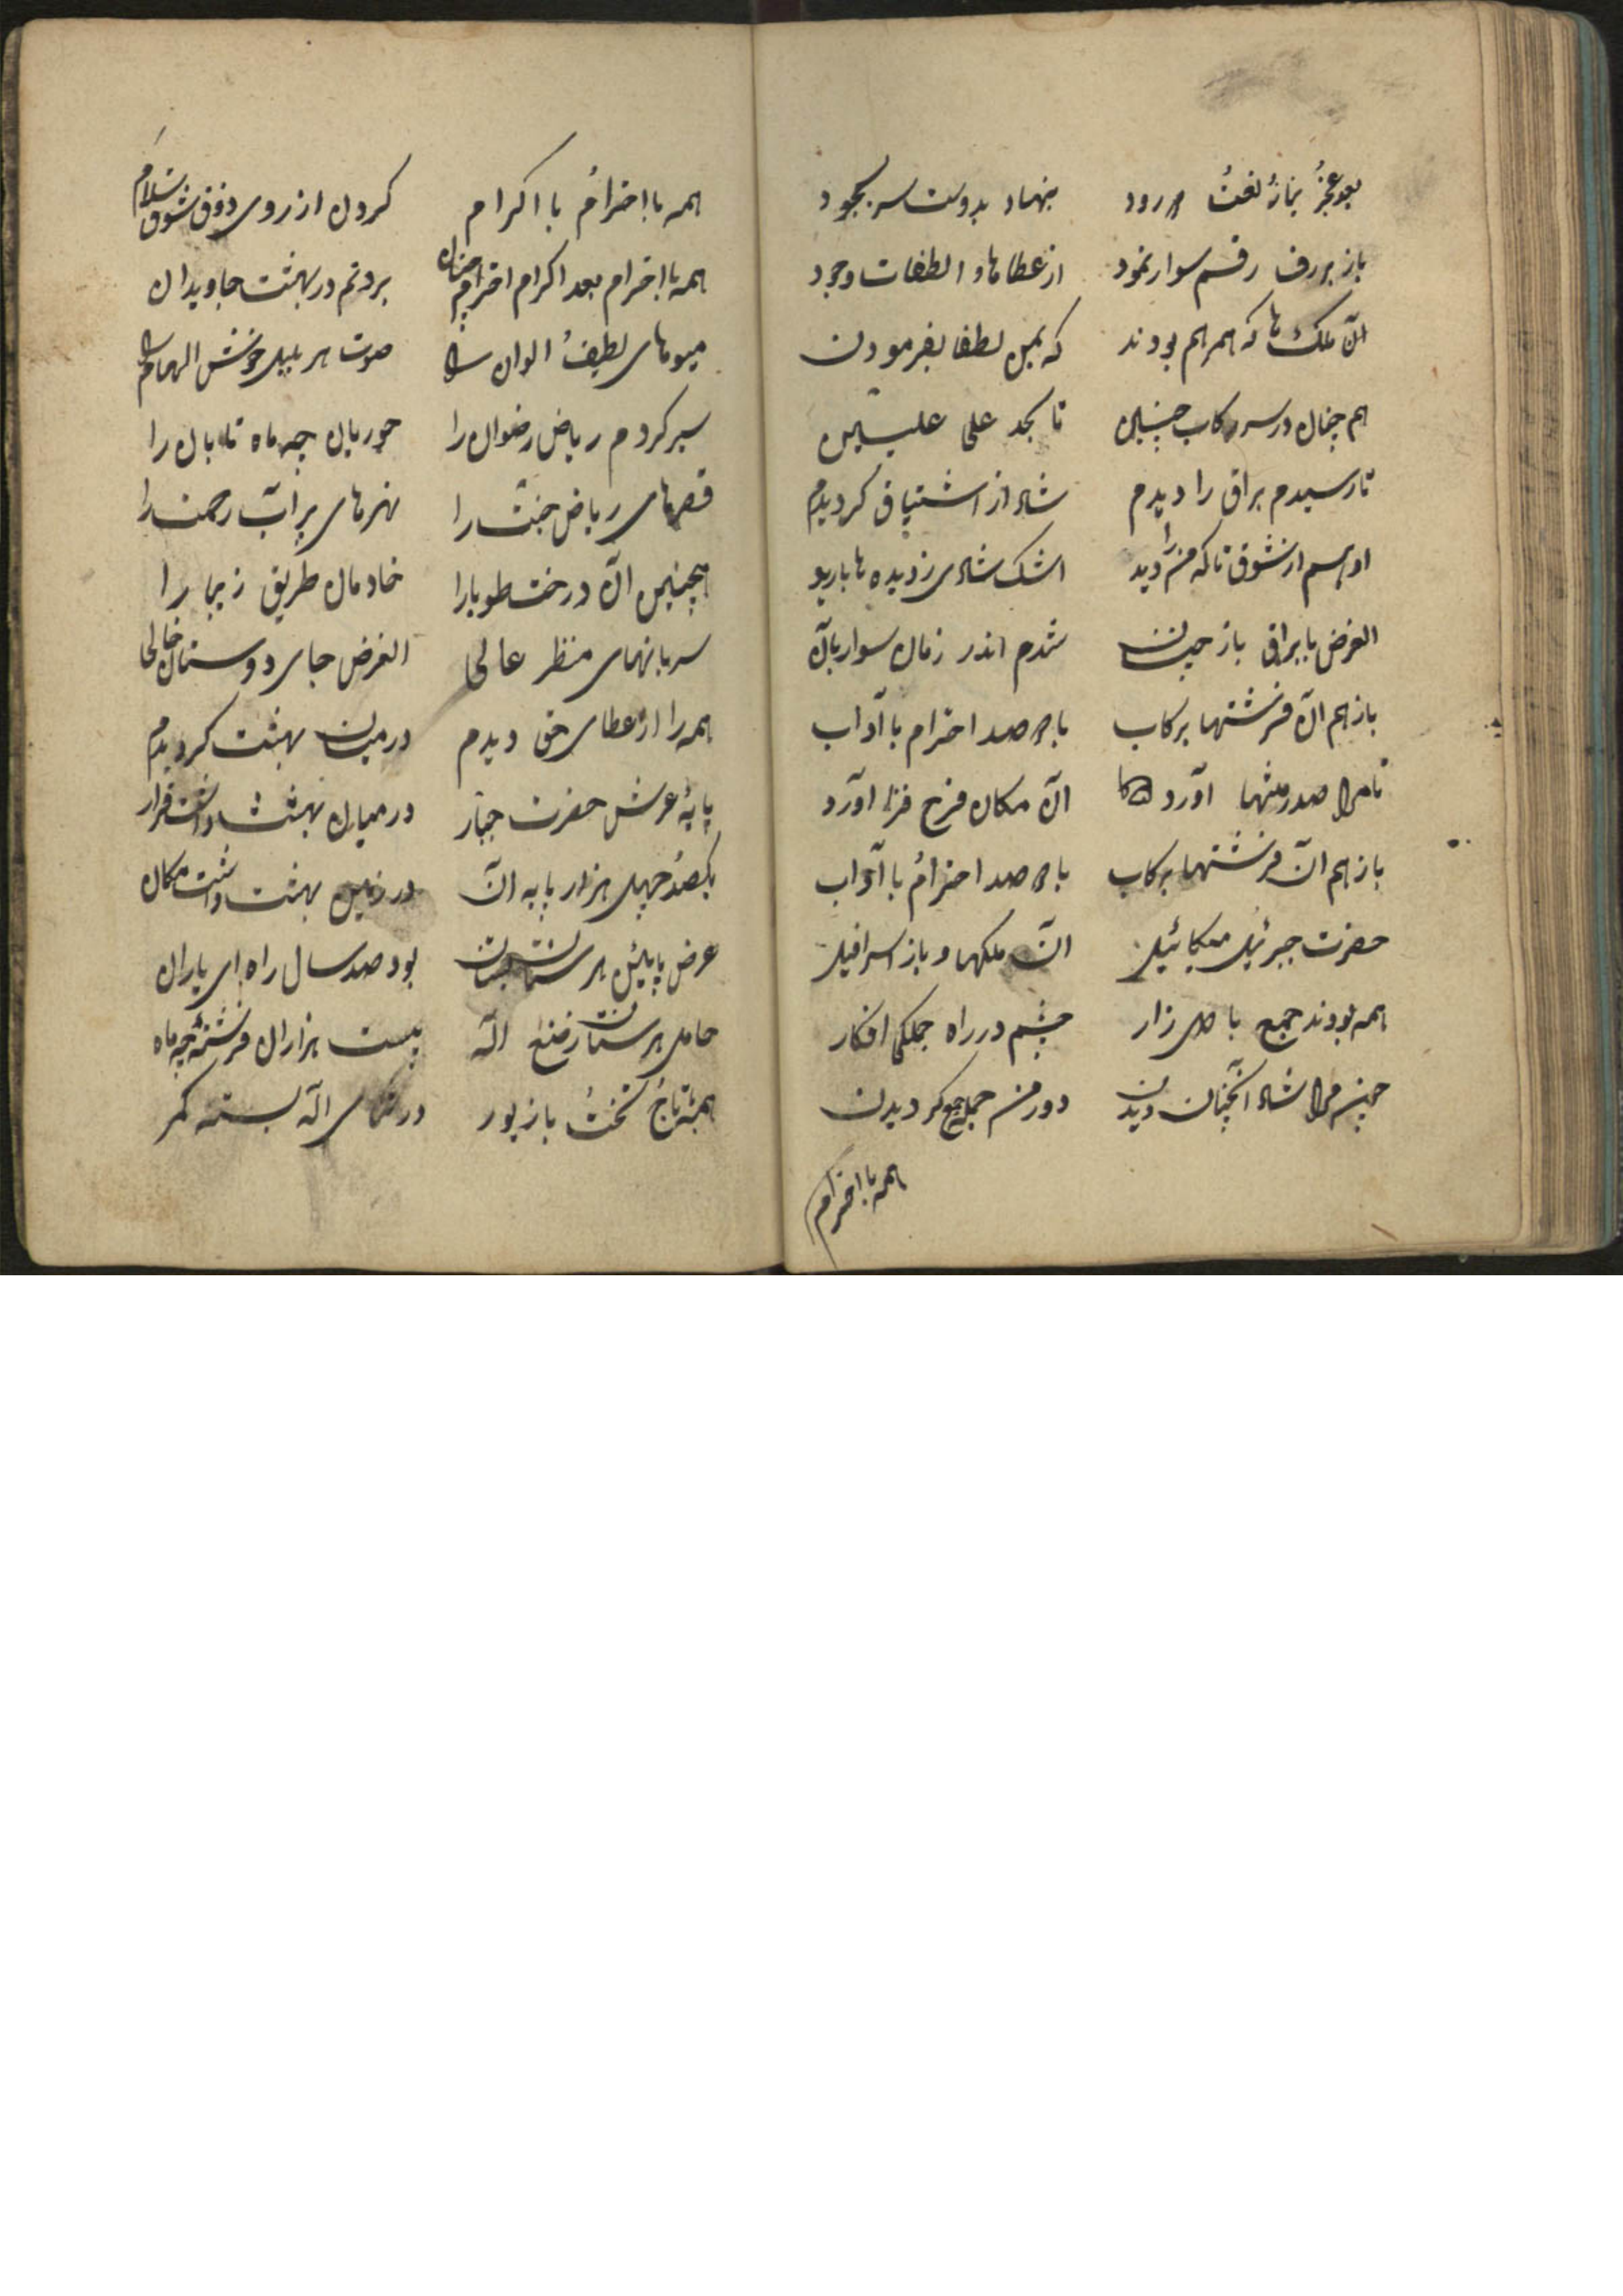 بعد عجز نماز نعت درود بنهاد بدوست سر بسجود
باز بررف رفم سوار نمود از عطاها و الطفات وجود
آن ملک ها که همرهم بودند که بمن لطفا بفرمودن
هم چنان در سر رکاب چنین تا بحد علی علیین
تا رسیدم براق را دیدم شاد از اشتیاق کردیدم
او بسم از شوق تا که من را دید اشک شادی ز دیده ها بارید
الغرض با براق باز شدم اندر زمان سوار بآن
باز هم آن فرشتها برکاب با دو صد احترام با آداب
تا مرا صدر منتها آورد آن مکان فرح فزا آورد
باز هم آن فرشتها برکاب با دو صد احترام با آداب
حضرت جبرئیل میکائیل آن ملکها و باز اسرافیل
همه بودند جمع با دل زار چشم در راه جملکی افکار
چون مرا شاد آنچنان دیدن دور من جمله جمع کردیدن
همه با احترام
همه با احترام با اکرام کردن از روی ذوق شوق سلام
همه با احترام بعد اکرام احترام چنان بردنم در بهشت جاویدان
میوهای لطیف الوان را صوت هر بلبل خوش الهان را
سیر کردم ریاض رضوان را حوریان چه ماه تابان را
قصرهای ریاض جنت را نهرهای پر آب رحمت را
همچنین آن درخت طوبا را خادمان طریق زیبا را
سربانهای منظر عالی الغرض جای دوستان خالی
همه را از عطای حق دیدم در میان بهشت کردیدم
پایهٔ عرش حضرت جبار در میان بهشت داشت قرار
یکصد چهل هزار پایه آن در زمین بهشت داشت مکان
عرض پایین هر ستان بود صد سال راه ای یاران
حامل هر ستان ز صنع اله بیست هزاران فرشته چه ماه
همه تاج تخت با زیور در ثنای اله بسته کمر